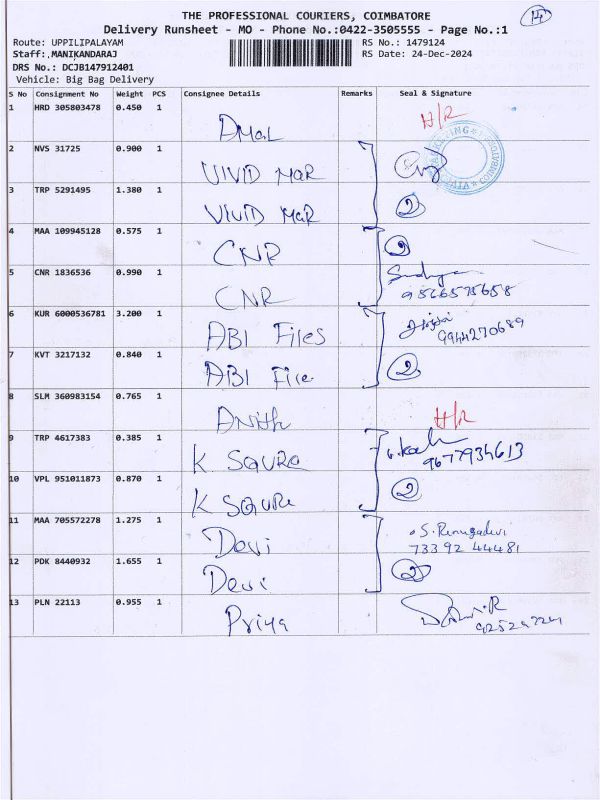 14
THE PROFESSIONAL COURIERS, COIMBATORE
Delivery Runsheet - MO - Phone No.:0422-3505555 - Page No.:1
Route: UPPILIPALAYAM RS No.: 1479124
Staff:,MANIKANDARAJ RS Date: 24-Dec-2024
DRS No.: DCJB147912401
Vehicle: Big Bag Delivery
S No Consignment No Weight PCS Consignee Details Remarks Seal & Signature
1 HRD 305803478 0.450 1 H/R
DMaL
2 NVS 31725 0.900 1
VIVID MaR
3 TRP 5291495 1.380 1
VIVID MaR 2
4 MAA 109945128 0.575 1
CNR 2
5 CNR 1836536 0.990 1
CNR 9566575658
6 KUR 6000536781 3.200 1
ABI Files 9944270689
7 KVT 3217132 0.840 1
ABI File 2
8 SLM 360983154 0.765 1
Anith H/R
9 TRP 4617383 0.385 1
K SQURE 9677934613
10 VPL 951011873 0.870 1
K SQURE 2
11 MAA 705572278 1.275 1
Devi S. Renugadevi
73392 44481
12 PDK 8440932 1.655 1
Devi 2
13 PLN 22113 0.955 1
Priya